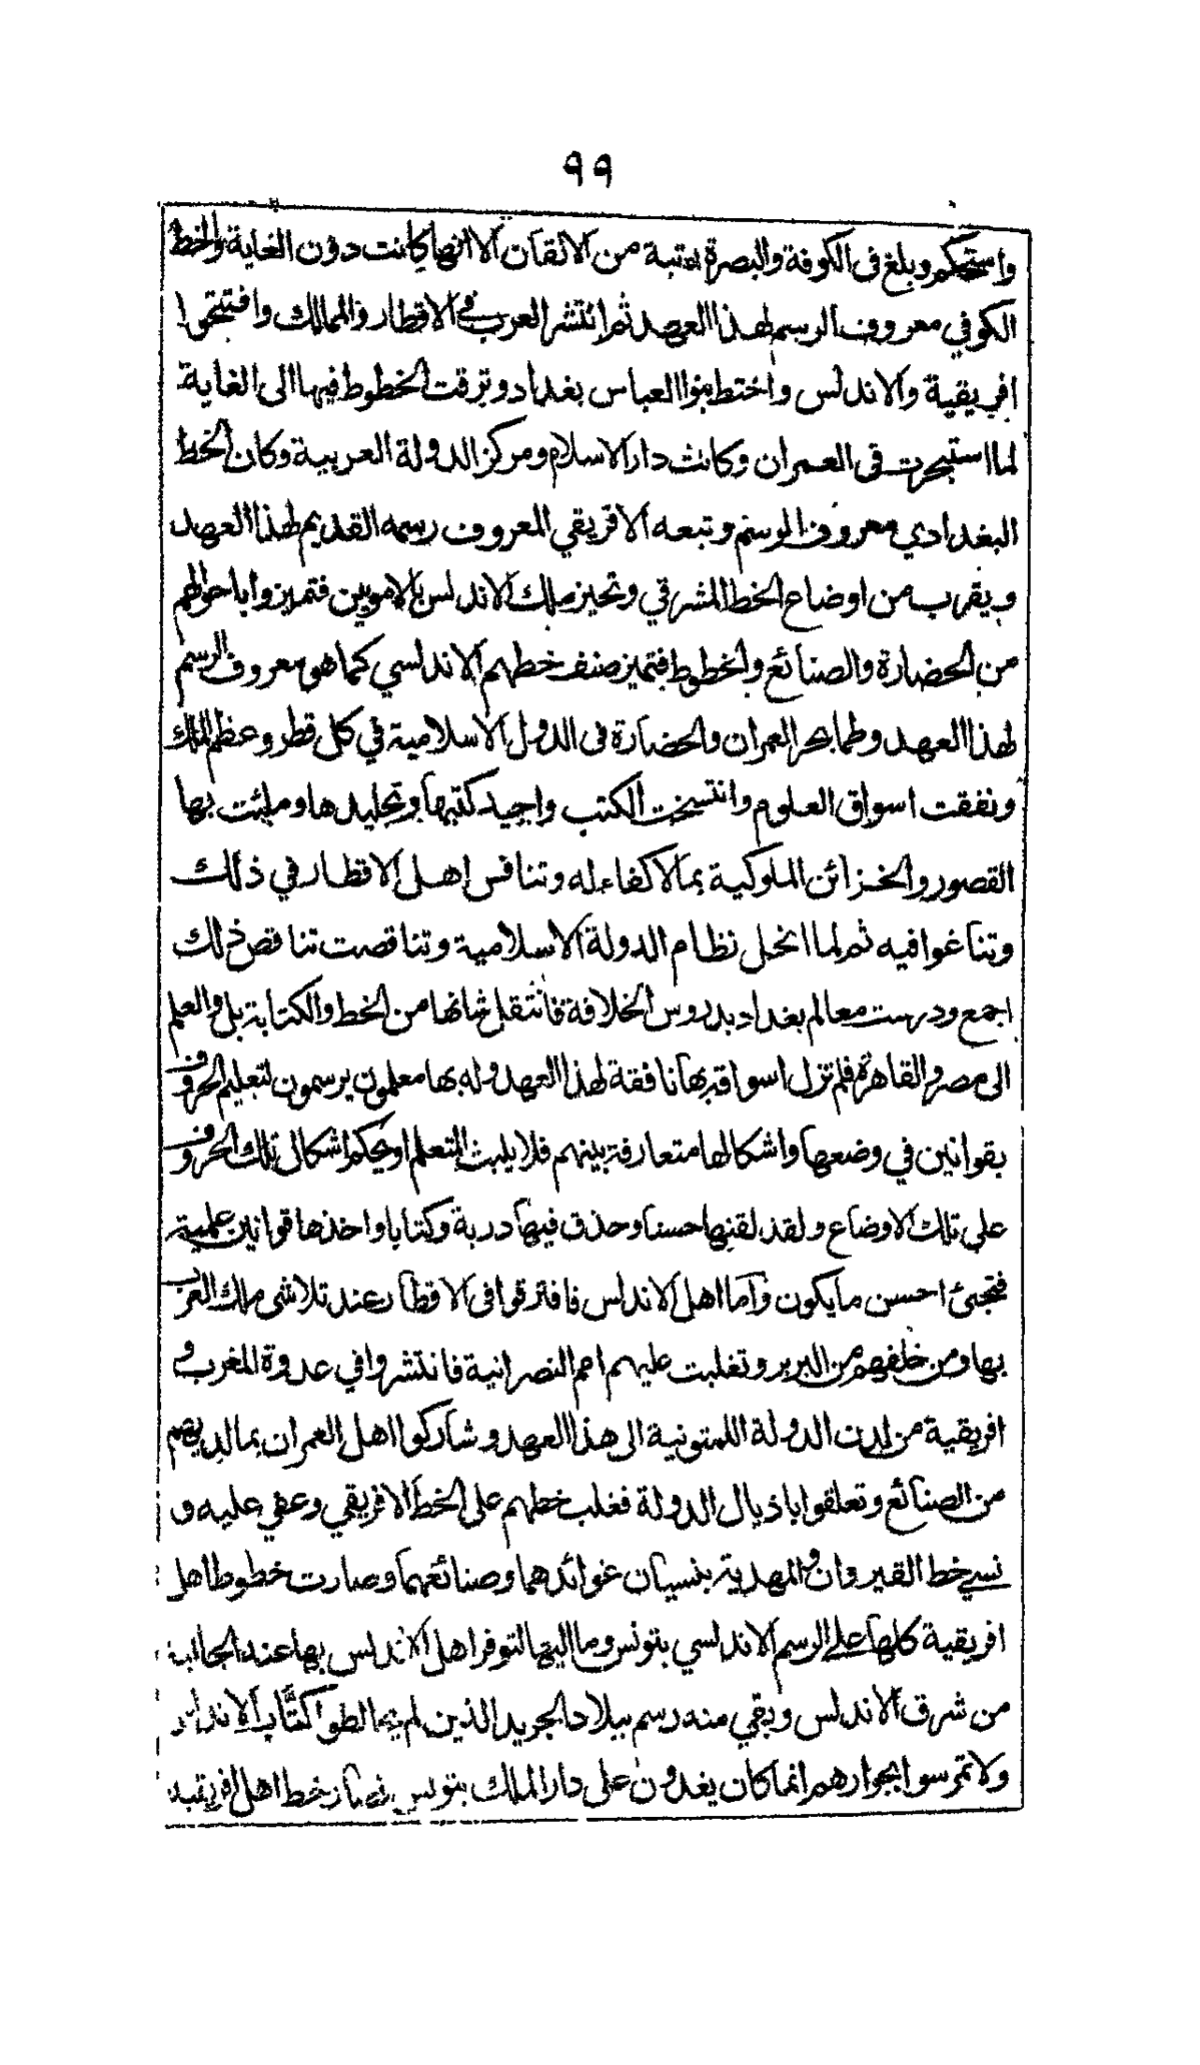 ٩٩
واستحكم وبلغ فى الكوفة والبصرة رتبة من الاتقان الا انها كانت دون الغاية والخط
الكوفي معروف الرسم لهذا العهد ثم انتشر العرب في الاقطار والممالك وافتتحوا
افريقية والاندلس واختط بنوا العباس بغداد وترقت الخطوط فيها الى الغاية
لما استبحرت فى العمران وكانت دار الاسلام ومركز الدولة العربية وكان الخط
البغدادي معروف الرسم وتبعه الافريقي المعروف رسمه القديم لهذا العهد
ويقرب من اوضاع الخط المشرقي وتحيز ملك الاندلس بالامويين فتميزوا باحوالهم
من الحضارة والصنائع والخطوط فتميز صنف خطهم الاندلسي كما هو معروف الرسم
لهذا العهد وطما بحر العمران والحضارة فى الدول الاسلامية في كل قطر وعظم الملك
ونفقت اسواق العلوم وانتسخت الكتب واجيد كتبها وتجليدها وملئت بها
القصور والخزائن الملوكية بما لا كفاء له وتنافس اهل الاقطار في ذلك
وتناغوا فيه ثم لما انحل نظام الدولة الاسلامية وتناقصت تناقص ذلك
اجمع ودرست معالم بغداد بدروس الخلافة فانتقل شانها من الخط والكتابة بل والعلم
الى مصر والقاهرة فلم تزل اسواقه بها نافقة لهذا العهد وله بها معلمون يرسمون لتعليم الحروف
بقوانين في وضعها واشكالها متعارفة بينهم فلا يلبث المتعلم او يحكم اشكال تلك الحروف
على تلك الاوضاع ولقد لقنها حسنا وحذق فيها دربة وكتابا واخذها قوانين علمية
فتجئ احسن ما يكون واما اهل الاندلس فافترقوا فى الاقطار عند تلاشى ملك العرب
بها ومن خلفهم من البربر وتغلبت عليهم امم النصرانية فانتشروا في عدوة المغرب و
افريقية من لدن الدولة اللمتونية الى هذا العهد وشاركوا اهل العمران بما لديهم
من الصنائع وتعلقوا باذيال الدولة فغلب خطهم على الخط الافريقي وعفي عليه و
نسي خط القيروان والمهدية بنسيان عوائدهما وصنائعهما وصارت خطوط اهل
افريقية كلها على الرسم الاندلسي بتونس وما اليها لتوفر اهل الاندلس بها عند الجالية
من شرق الاندلس وبقي منه رسم ببلاد الجريد الذين لم يخالطوا كتّاب الاندلس
ولا تمرسوا بجوارهم انما كان يغدون على دار الملك بتونس فصار خط اهل افريقية